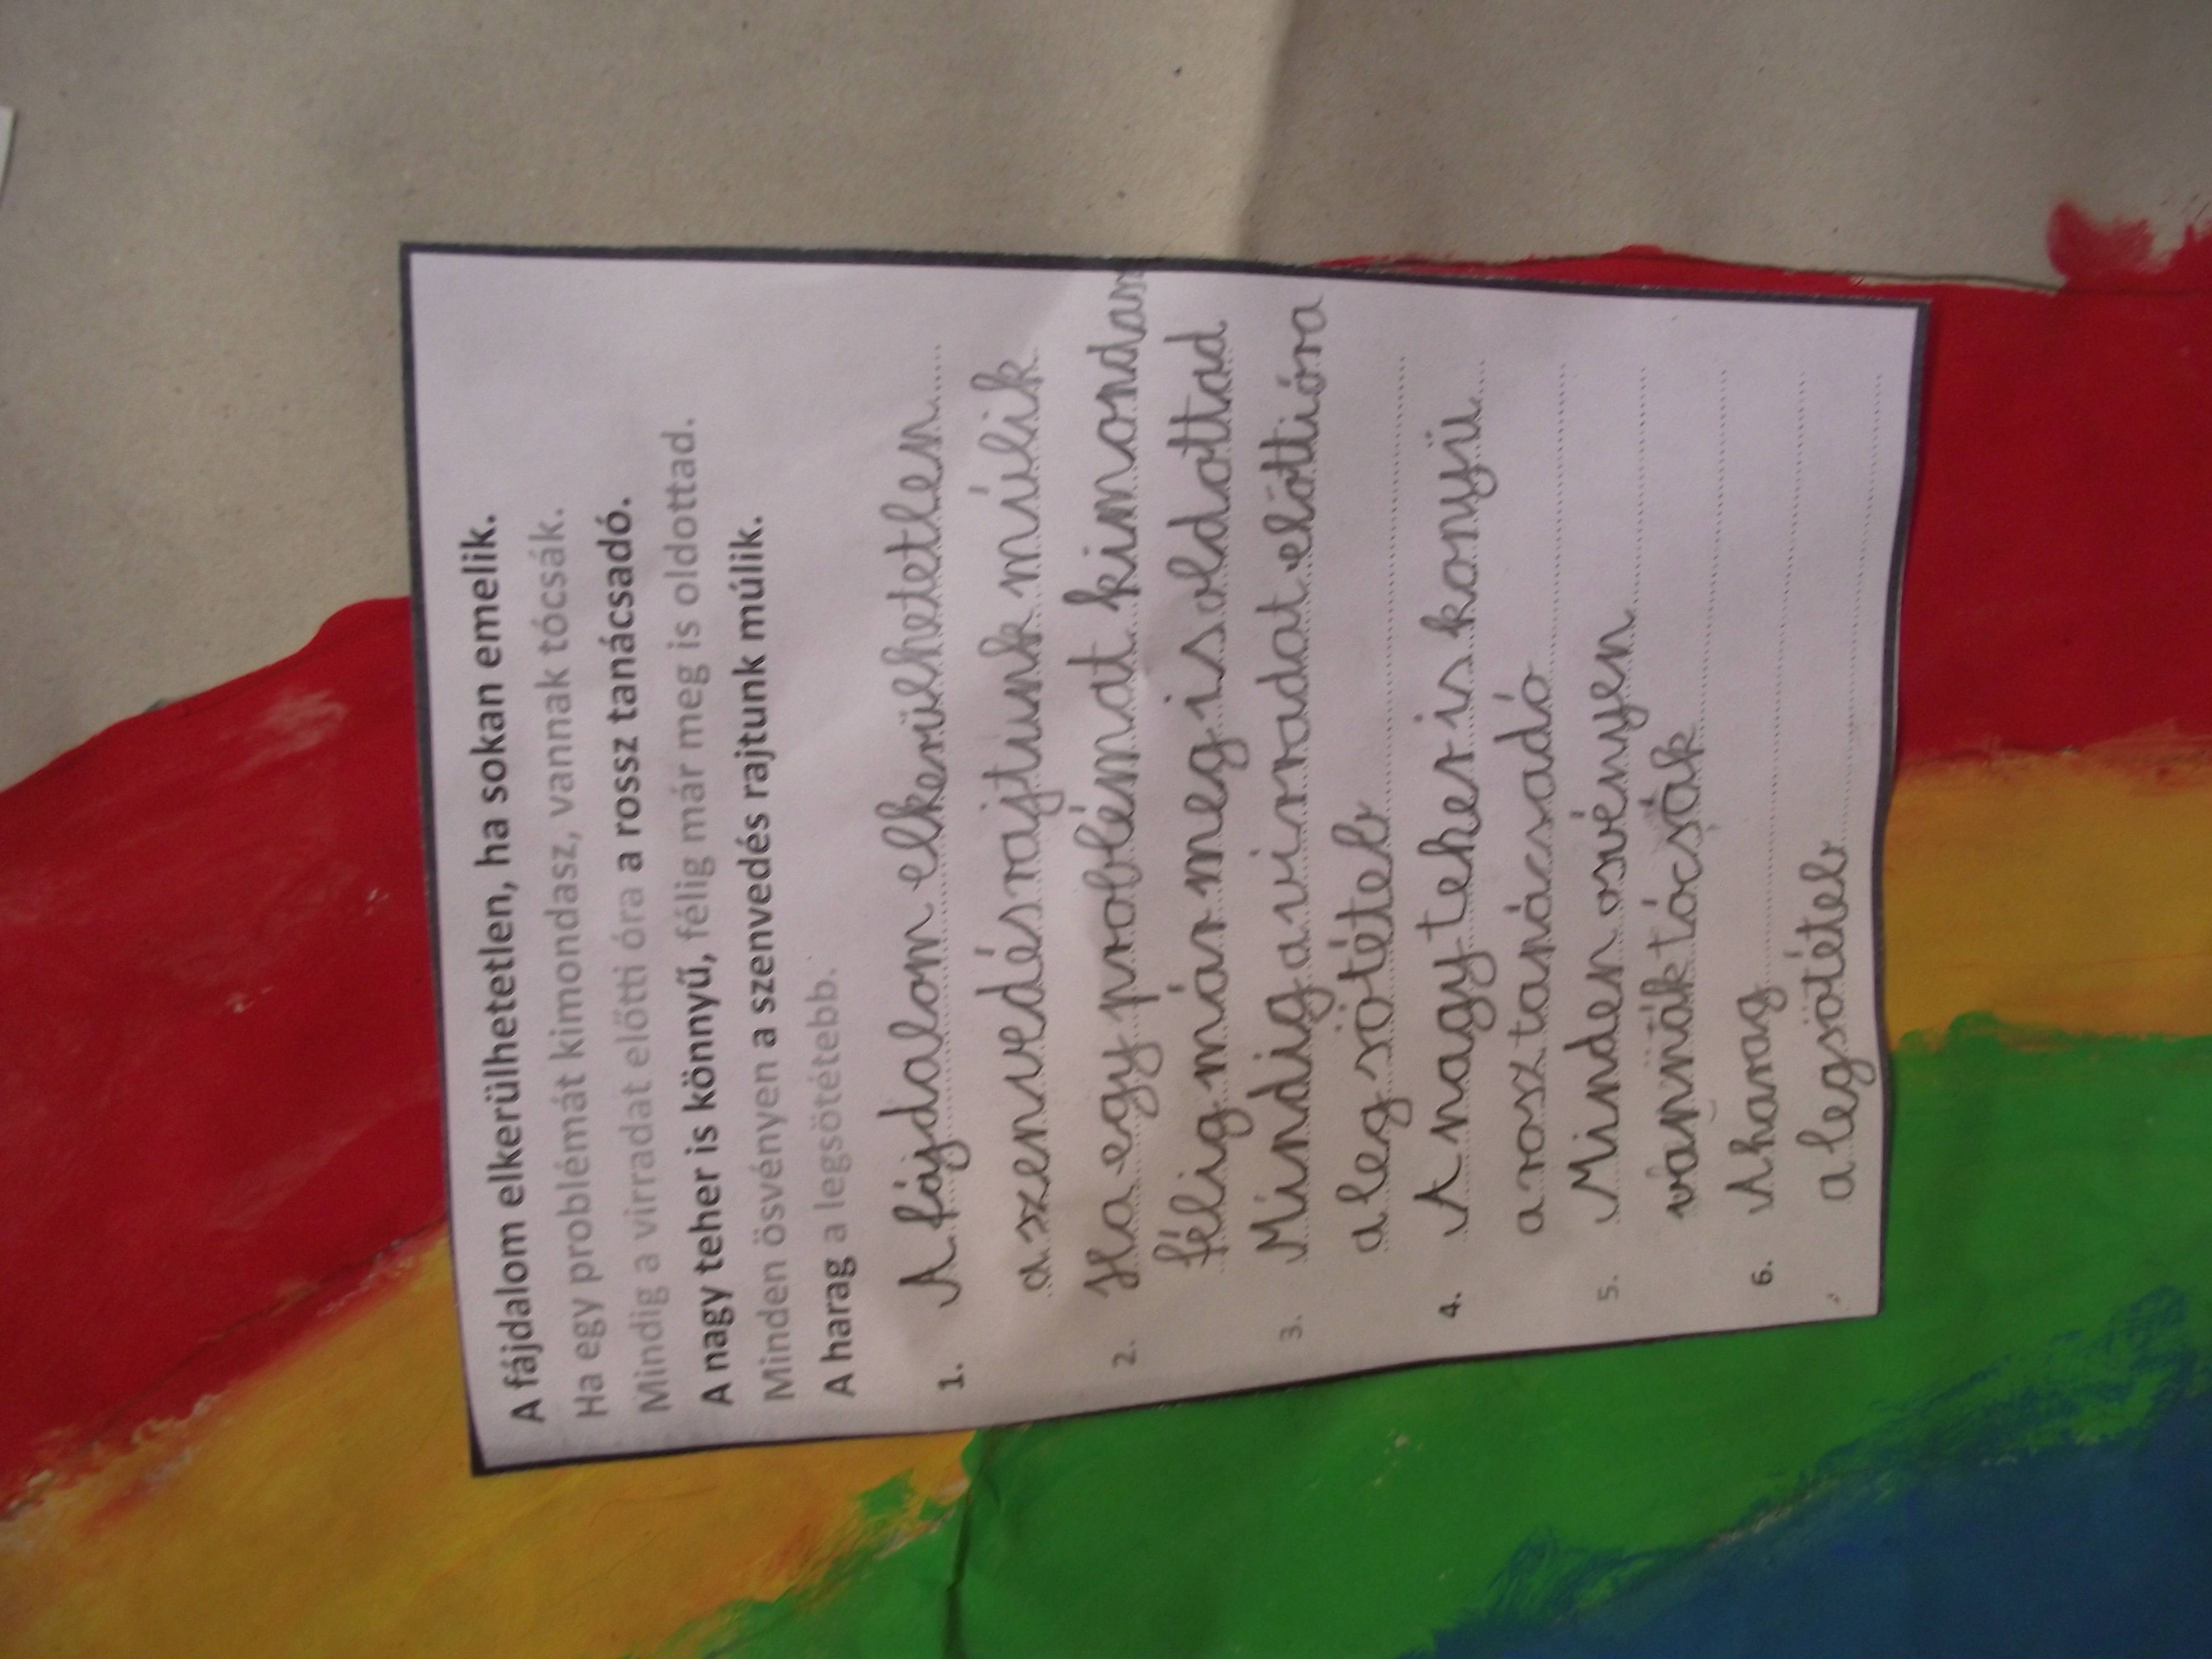 A fájdalom elkerülhetetlen, ha sokan emelik.
Ha egy problémát kimondasz, vannak tócsák.
Mindig a virradat előtti óra a rossz tanácsadó.
A nagy teher is könnyű, félig már meg is oldottad.
Minden ösvényen a szenvedés rajtunk múlik.
A harag a legsötétebb.
1. A fájdalom elkerülhetetlen
a szenvedés rajtunk múlik
2. Ha egy problémát kimondasz
félig már meg is oldottad
3. Mindig a virradat előtti óra
a legsötéteb
4. A nagy teher is konyü
a rosz tanácsadó
5. Minden osvényen
vannak tócsák
6. A harag
a legsötéteb